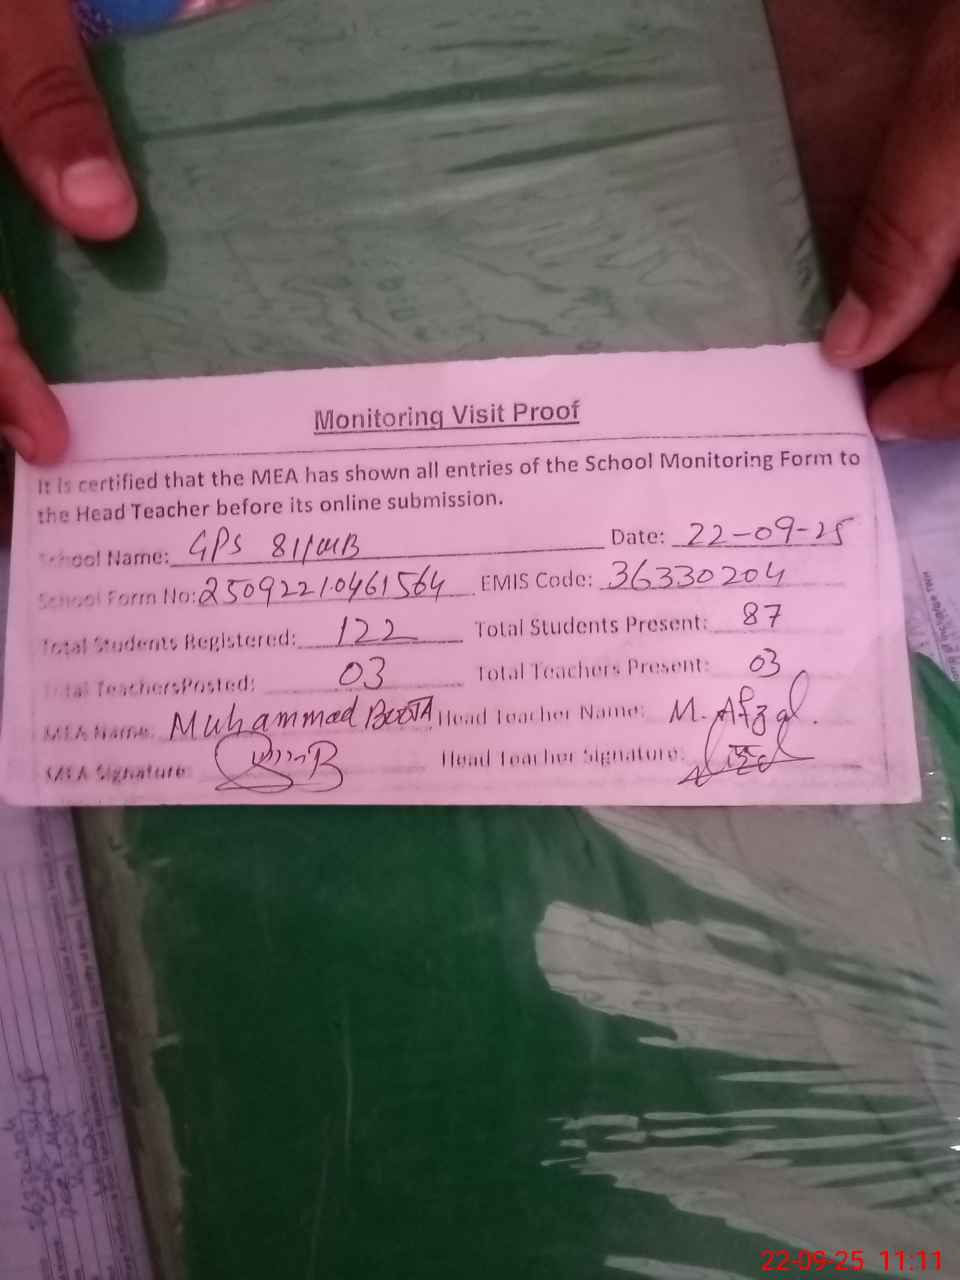 Monitoring Visit Proof
It is certified that the MEA has shown all entries of the School Monitoring Form to
the Head Teacher before its online submission.
School Name: GPS 811MB Date: 22-09-25
School Form No: 25092210461564 EMIS Code: 36330204
Total Students Registered: 122 Total Students Present: 87
Total TeachersPosted: 03 Total Teachers Present: 03
MEA Name: Muhammad BOOTA Head Teacher Name: M. Afzal.
MEA Signature: Head Teacher Signature:
22-09-25 11:11